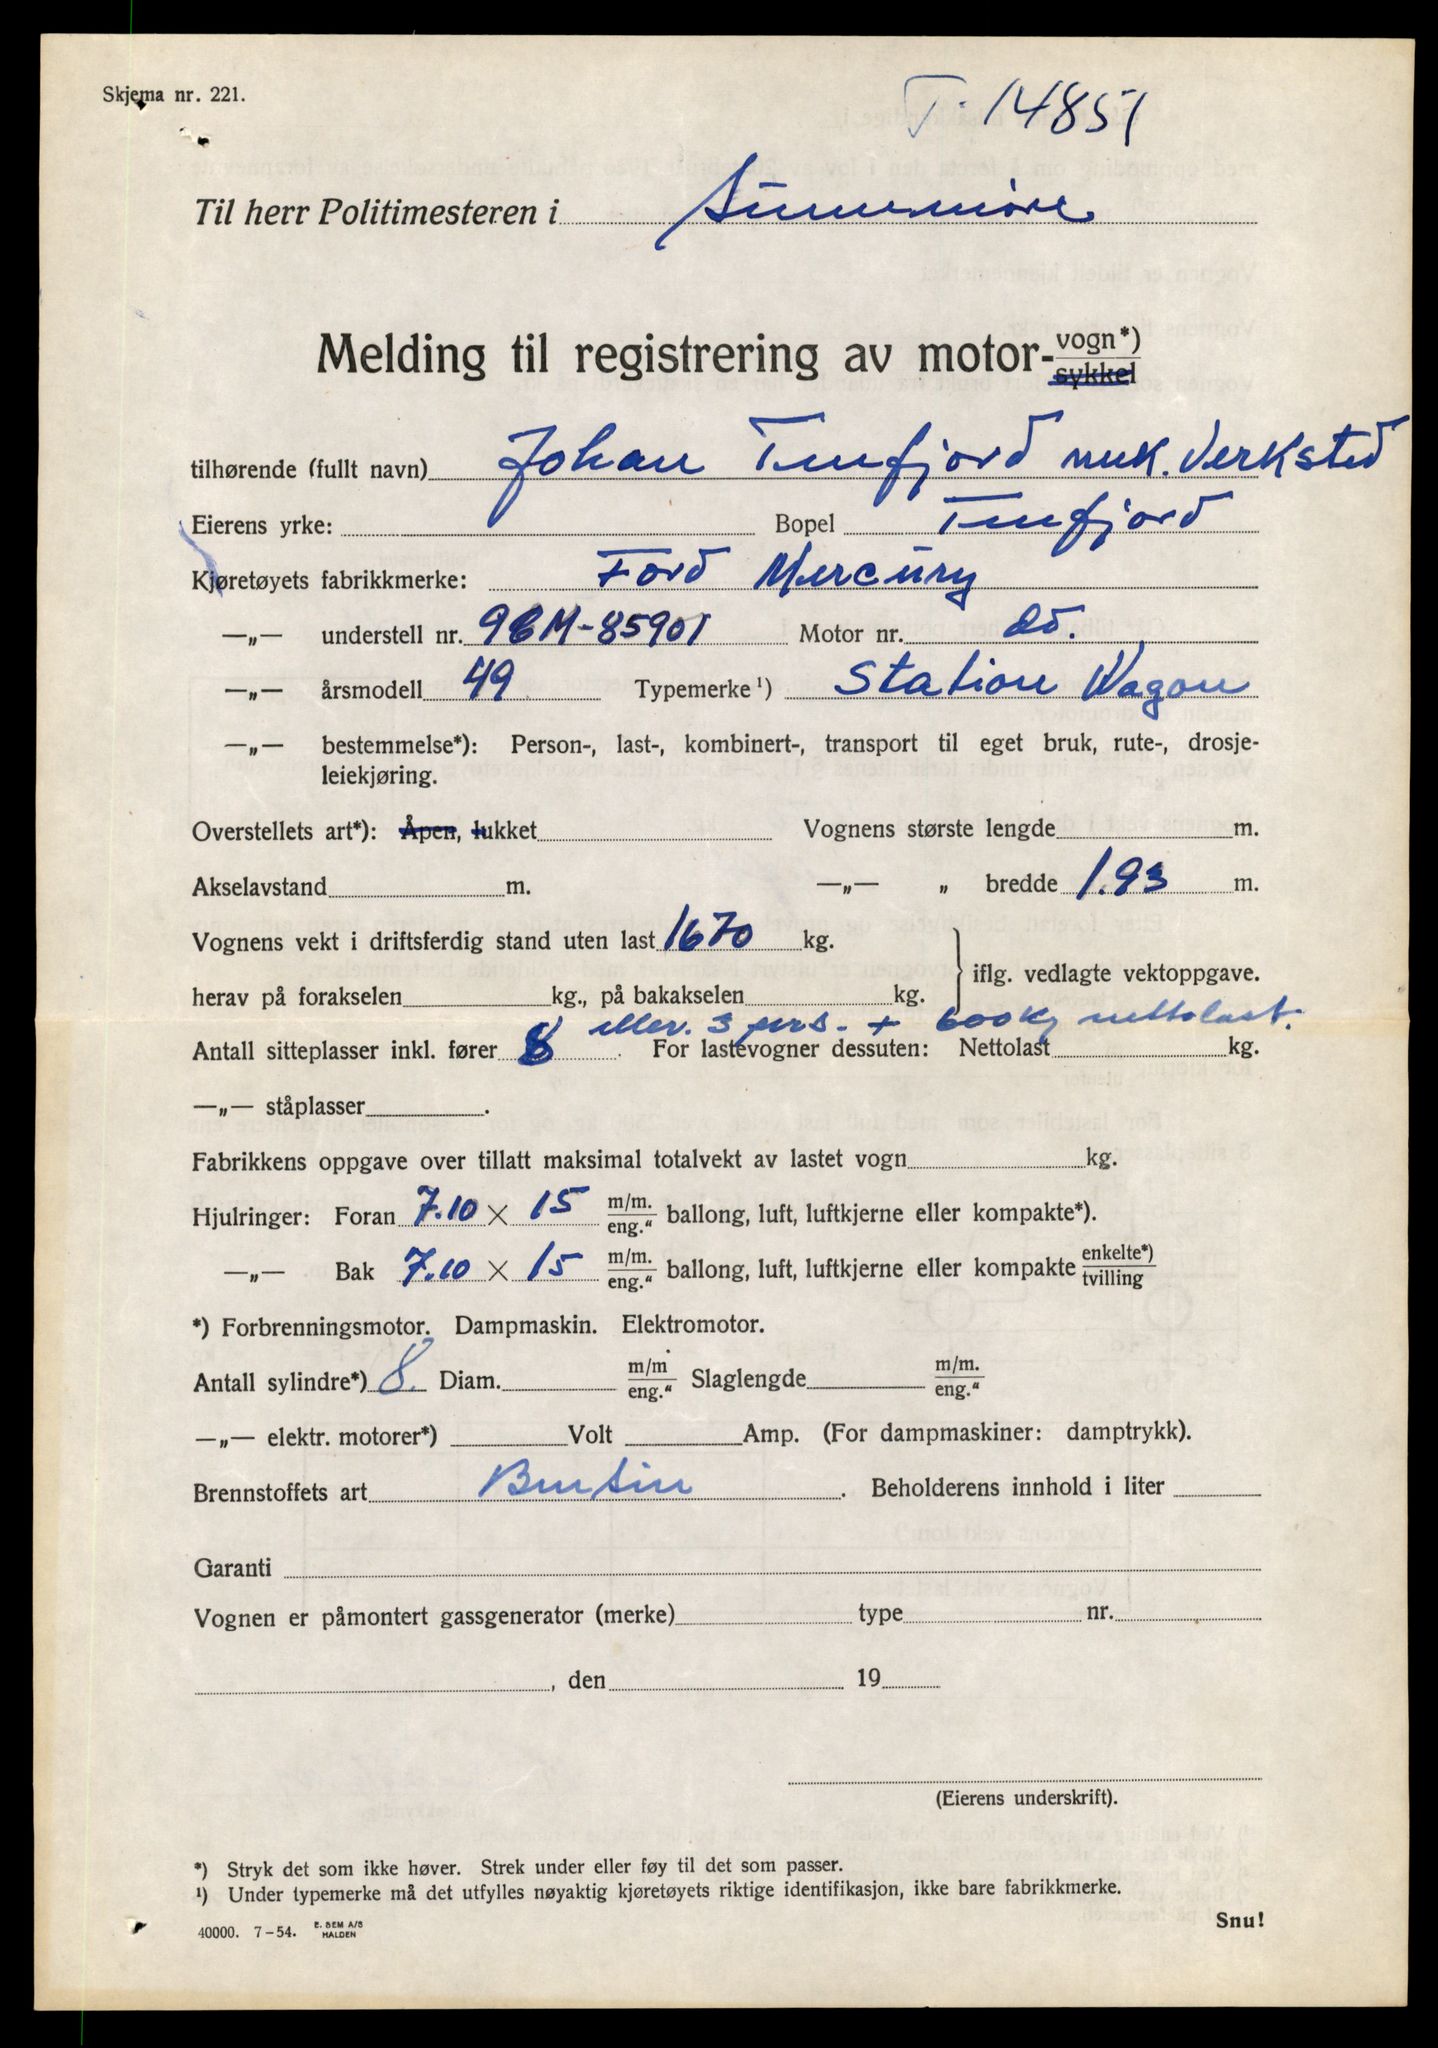 Skjema nr. 221.
T-14851
Til herr Politimesteren i Sunnmøre
Melding til registrering av motor-vogn*)
sykkel
tilhørende (fullt navn) Johan Tennfjord mek. Verksted
Eierens yrke: Bopel Tennfjord
Kjøretøyets fabrikkmerke: Ford Mercury
—„— understell nr. 9CM-85901 Motor nr. do.
—„— årsmodell 49 Typemerke¹) Station Wagon
—„— bestemmelse*): Person-, last-, kombinert-, transport til eget bruk, rute-, drosje-
leiekjøring.
Overstellets art*): Åpen, lukket Vognens største lengde m.
Akselavstand m. —„— „ bredde 1.93 m.
Vognens vekt i driftsferdig stand uten last 1670 kg.
iflg. vedlagte vektoppgave.
herav på forakselen kg., på bakakselen kg.
eller. 3 pers. + 600 kg nettolast.
Antall sitteplasser inkl. fører 8 . For lastevogner dessuten: Nettolast kg.
—„— ståplasser .
Fabrikkens oppgave over tillatt maksimal totalvekt av lastet vogn kg.
Hjulringer: Foran 7.10 × 15 m/m. eng." ballong, luft, luftkjerne eller kompakte*).
—„— Bak 7.10 × 15 m/m. eng." ballong, luft, luftkjerne eller kompakte enkelte*) tvilling
*) Forbrenningsmotor. Dampmaskin. Elektromotor.
Antall sylindre*) 8. Diam. m/m eng." Slaglengde m/m. eng."
—„— elektr. motorer*) Volt Amp. (For dampmaskiner: damptrykk).
Brennstoffets art Bensin . Beholderens innhold i liter
Garanti
Vognen er påmontert gassgenerator (merke) type nr.
, den 19
(Eierens underskrift).
*) Stryk det som ikke høver. Strek under eller føy til det som passer.
¹) Under typemerke må det utfylles nøyaktig kjøretøyets riktige identifikasjon, ikke bare fabrikkmerke.
Snu!
40000. 7-54. E. SEM A/S
HALDEN